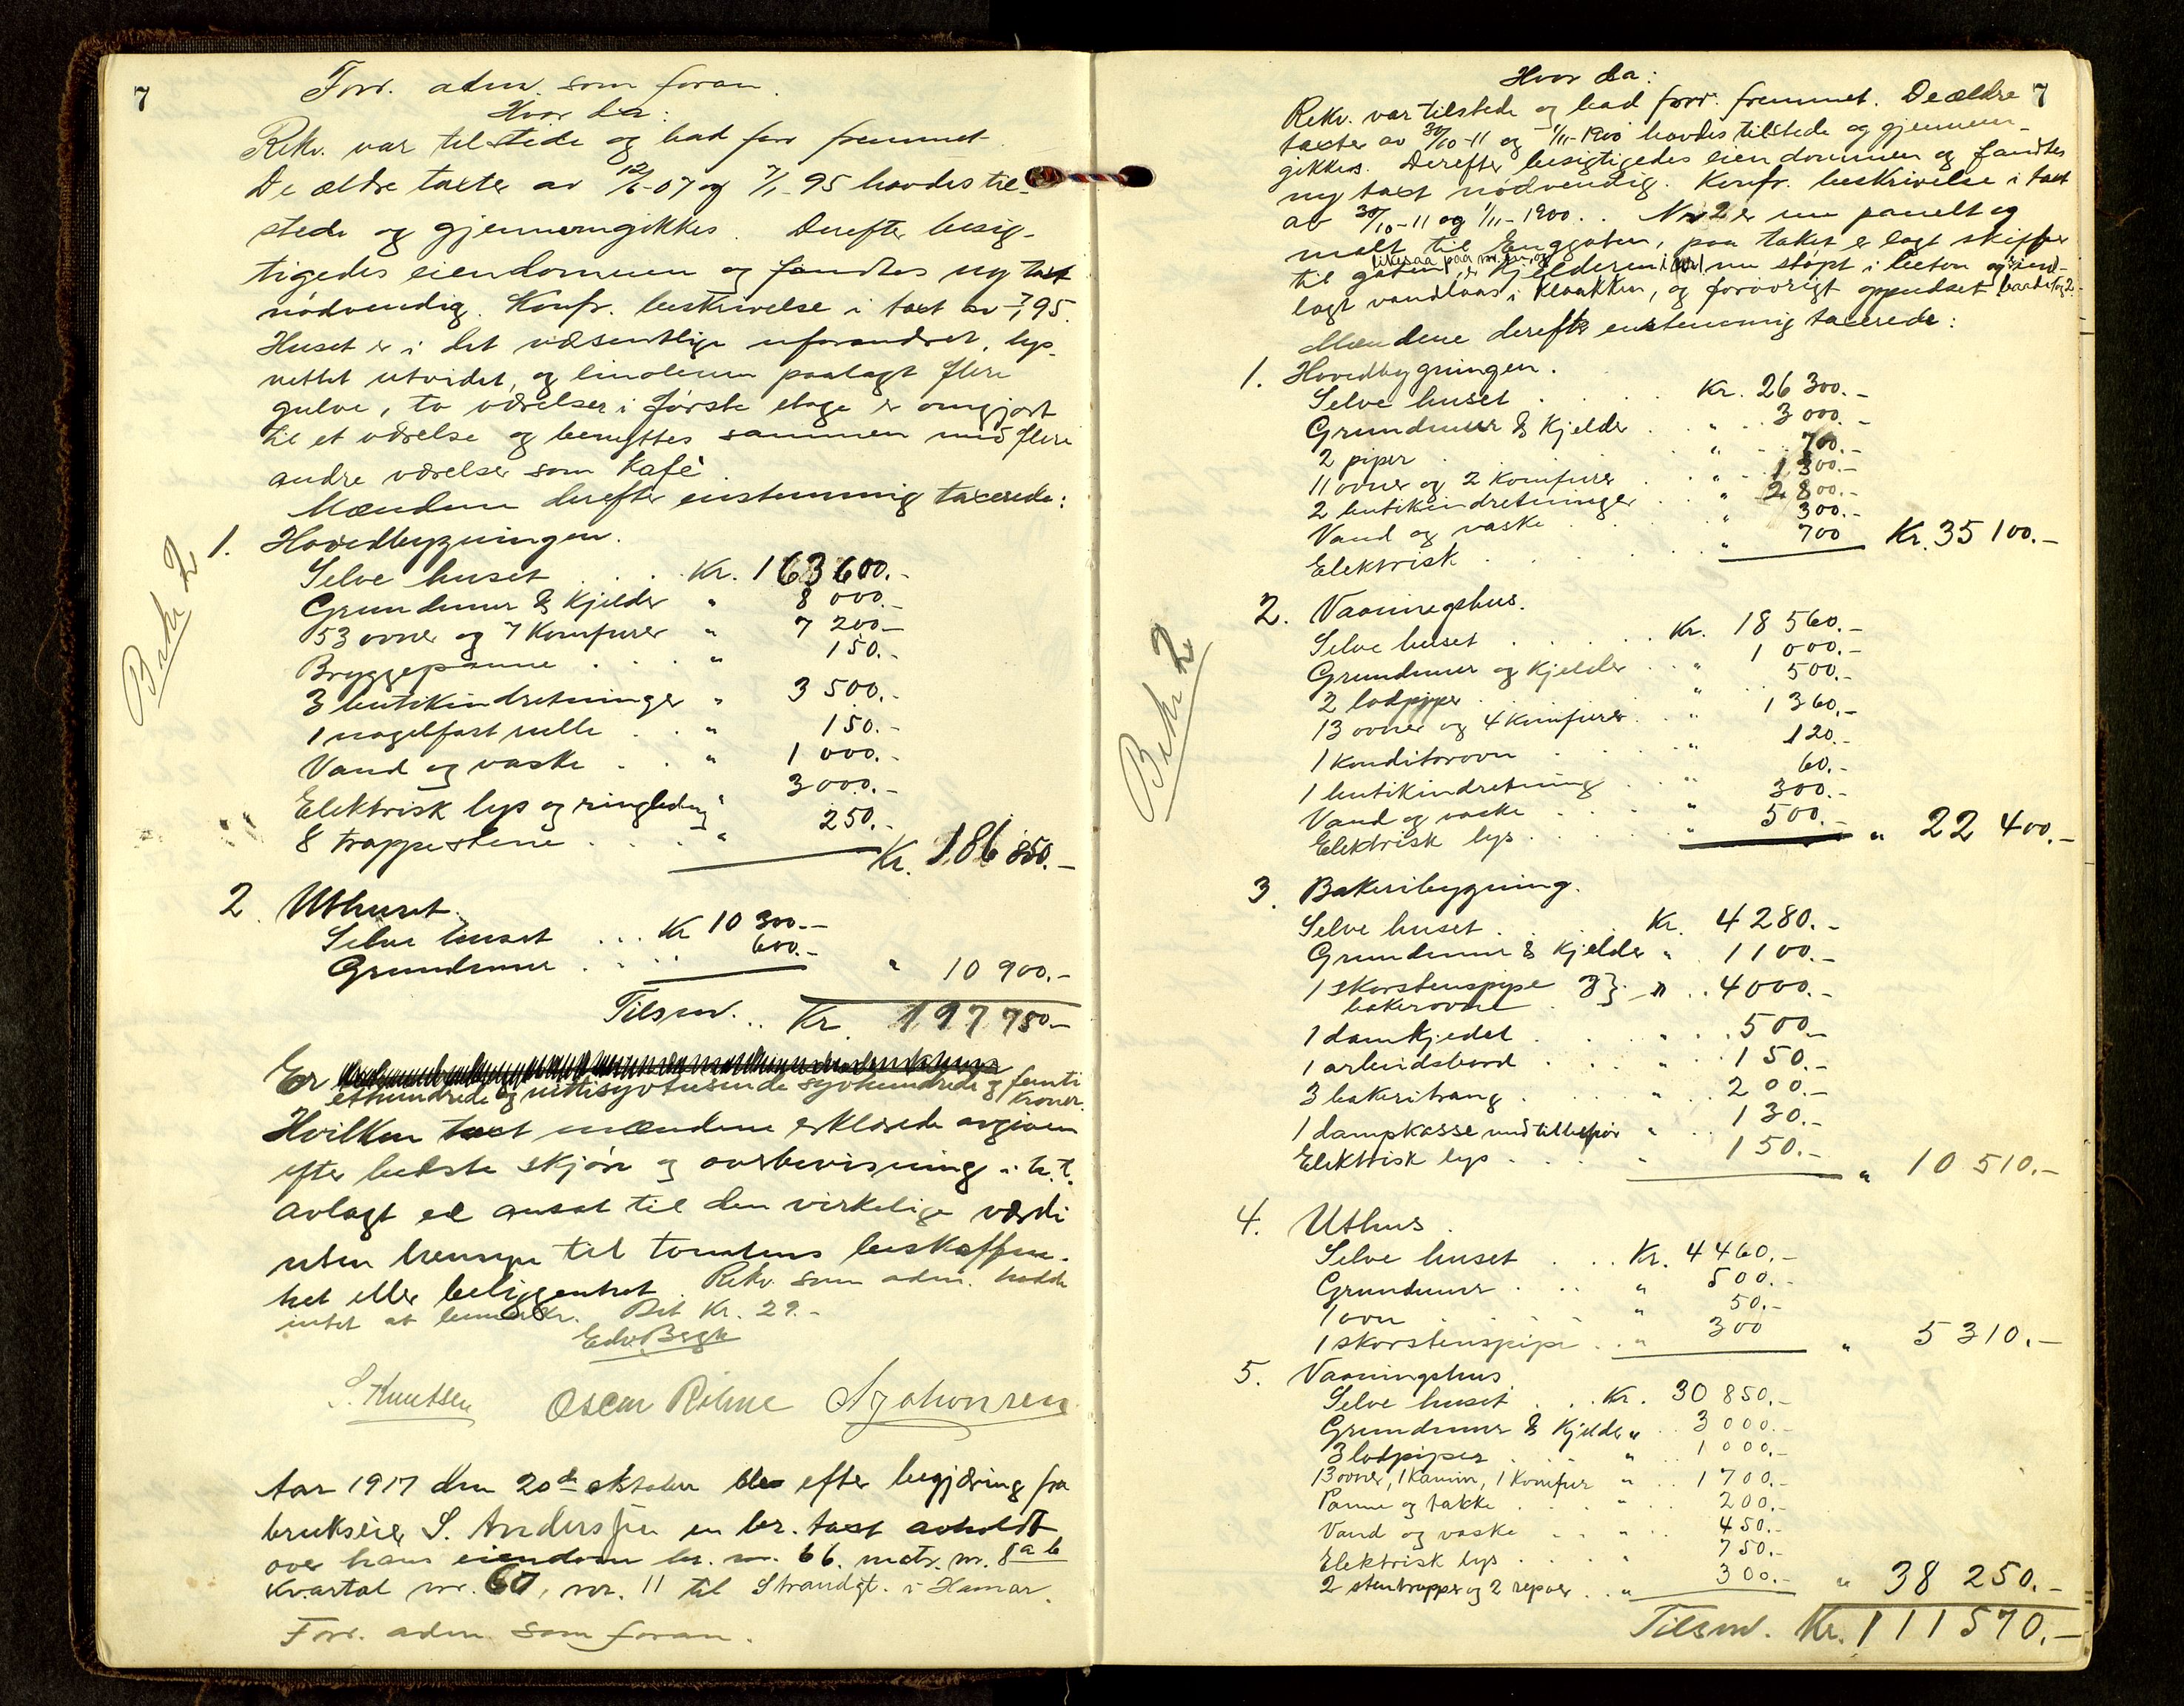 7
Forr. adm. som foran.
Hvor da:
Rekv. var tilstede og bad forr fremmet.
De ældre taxter av 12/6-07 og 7/1-95 havdes til-
stede og gjennemgikkes. Derefter besig-
tigedes eiendommen og fandtes ny taxt
nødvendig. Konfr. beskrivelse i taxt av 7/1 95.
Huset er i det væsentlige uforandret, lys-
nettet utvidet, og linoleum paalagt flere
gulve, to værelser i første etage er omgjort
til et værelse og benyttes sammen med flere
andre værelser som kafé
Mændene derefter enstemmig taxerede:
Bekr 2
1. Hovedbygningen.
Selve huset . . . Kr. 163 600.-
Grundmur & Kjelder " 8 000.-
53 ovner og 7 Komfurer " 7 200.-
Bryggepanne . . . " 150.-
3 butikindretninger " 3 500.-
1 nagelfast rulle . . " 150.-
Vand og vaske . . " 1 000.-
Elektrisk lys og ringledn. " 3000.-
8 trappestene . . . . " 250.-
Kr. 186 850.-
2. Uthuset.
Selve huset . . . Kr 10 300.-
Grundmur . . . . 600.-
" 10 900.-
Tilsm. . . Kr. 197 750.-
Er
ethundrede og nittisyvtusende syvhundrede og femti kroner.
Hvilken taxt mændene erklærede avgiven
efter bedste skjøn og overbevisning i h.t.
avlagt ed ansat til den virkelige værdi
uten hensyn til tomtens beskaffen-
het eller beliggenhet. Rekv. som adm. hadde
intet at bemerke. Bet. Kr. 29.-
Edv. Bergh
S. Knutsen Oscar Røhne A Johansen
Aar 1917 den 20de oktober blev efter begjæring fra
brukseier S. Andersen en br. taxt avholdt
over hans eiendom br. nr. 66. matr. nr. 8 a b
Kvartal nr. 67, nr. 11 til Strandgt. i Hamar.
Forr. adm. som foran.
7
Hvor da:
Rekv. var tilstede og bad forr. fremmet. De ældre
taxter av 30/10-11 og 1/11-1900 havdes tilstede og gjennem-
gikkes. Derefter besigtigedes eiendommen og fandtes
ny taxt nødvendig. Konfr. beskrivelse i taxt
av 30/10-11 og 1/11-1900. . Nr 2 er nu panelt og
malt til Enggaten, paa taket er lagt skiffer
til gaten, likesaa paa nr. , og Kjelderen i nu støpt i beton og ind-
lagt vandklaas i Kloakken, og forøvrigt oppudset
Mændene derefter enstemmig taxerede:
1. Hovedbygningen.
Selve huset . . . . Kr. 26 300.-
Grundmur & Kjelder . . " . 3 000.-
2 piper . . . " . . 700.-
11 ovner og 2 Komfurer . . " . 1 300.-
2 butikindretninger . . " 2 800.-
Vand og vaske . . . " 300.-
Elektrisk . . . . . " 700
Kr. 35 100.-
Bekr 2
2. Vaaningshus.
Selve huset . . . . Kr. 18 560.-
Grundmur og Kjelder . . " 1 000.-
2 lodpiper . . . " 500.-
13 ovner og 4 Komfurer . . " 1 360.-
1 konditorovn . . . . " 120.-
1 butikindretning . . " 60.-
Vand og vaske . . . " 300.-
Elektrisk lys . . . . " 500.-
" 22 400.-
3. Bakeribygning.
Selve huset . . . . Kr. 4 280.-
Grundmur & Kjelder " . 1 100.-
1 skorstenspipe &} " . . 4000.-
bakerovne
1 damkjedel . . . . . 500.-
1 arbeidsbord . . . . " . . 150.-
3 bakeritraug . . . . " . . 200.-
1 dampkasse med tilbehør " . . 130.-
Elektrisk lys . . . . " 150.-
" 10 510.-
4. Uthus.
Selve huset . . . Kr. 4 460.-
Grundmur . . . " 500.-
1 ovn . . . . " 50.-
1 skorstenspipe . . " 300
" 5 310.-
5. Vaaningshus
Selve huset . . . Kr. 30 850.-
Grundmur & Kjelder " . . 3 000.-
3 lodpiper . . . " 1 000.-
13 ovner, 1 Kamin, 1 Komfur " . . 1 700.-
Panne og takke . . . . " . . 200.-
Vand og vaske . . . " . . 450.-
Elektrisk lys . . . . " 750.-
2 stentrapper og 2 repoer . . " 300.-
" 38 250.-
Tilsm. Kr. 111 570.-